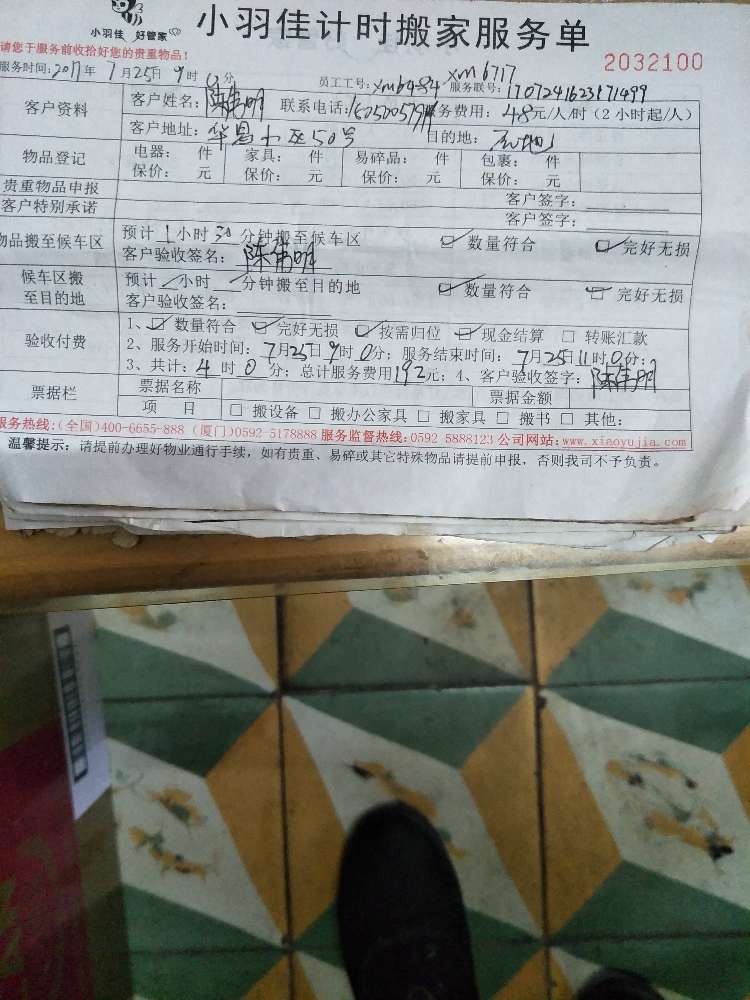 小羽佳 好管家
小羽佳计时搬家服务单
请您于服务前收拾好您的贵重物品!
2032100
服务时间:2017年 7月25日 9时 0分 员工工号:xm6484 xm6717 服务联号:
客户资料
客户姓名:陈伟明 联系电话: 服务费用:48元/人/时(2小时起/人)
客户地址:华昌小区50号 目的地:
物品登记
电器: 件 家具: 件 易碎品: 件 包裹: 件
保价: 元 保价: 元 保价: 元 保价: 元
贵重物品申报 客户签字:
客户特别承诺 客户签字:
物品搬至候车区
预计1小时30分钟搬至候车区 ☑数量符合 ☑完好无损
客户验收签名:陈伟明
候车区搬至目的地
预计/小时/分钟搬至目的地 ☑数量符合 ☑完好无损
客户验收签名:
验收付费
1、☑数量符合 ☑完好无损 ☑按需归位 ☑现金结算 □转账汇款
2、服务开始时间:7月25日9时0分;服务结束时间:7月25日11时0分;
3、共计:4时0分;总计服务费用192元;4、客户验收签字:陈伟明
票据栏
票据名称 票据金额
项 目 □搬设备 □搬办公家具 □搬家具 □搬书 □其他:
服务热线:(全国)400-6655-888 (厦门)0592-5178888 服务监督热线:0592 5888123 公司网站:www.xiaoyujia.com
温馨提示:请提前办理好物业通行手续,如有贵重、易碎或其它特殊物品请提前申报,否则我司不予负责。